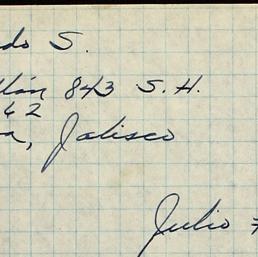 do S.
lán 843 S.H.
62
a, Jalisco
Julio